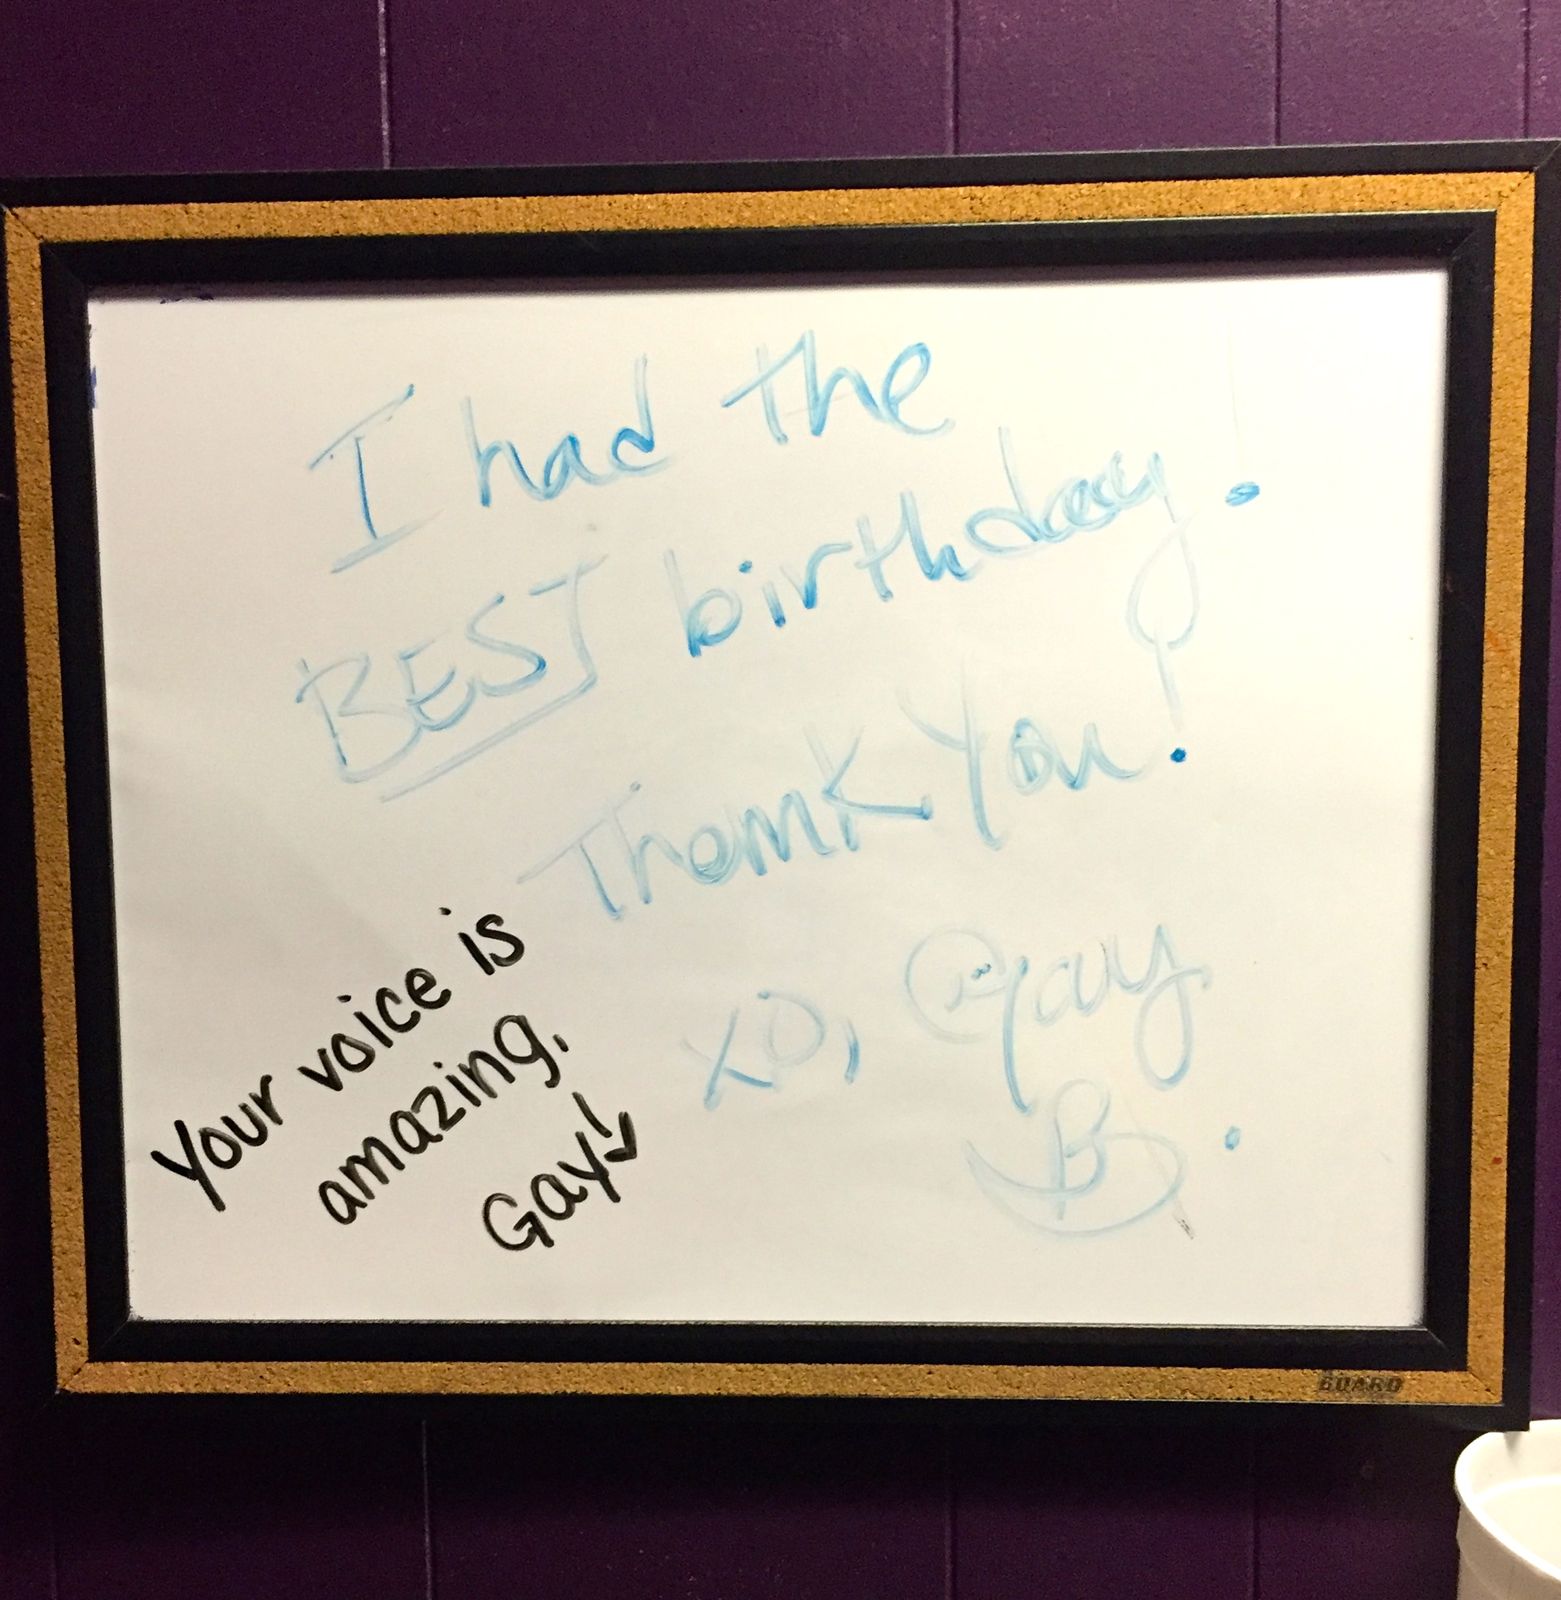 I had the
BEST birthday!
Thank You!
XO, Gay
B.
Your voice is
amazing,
Gay!